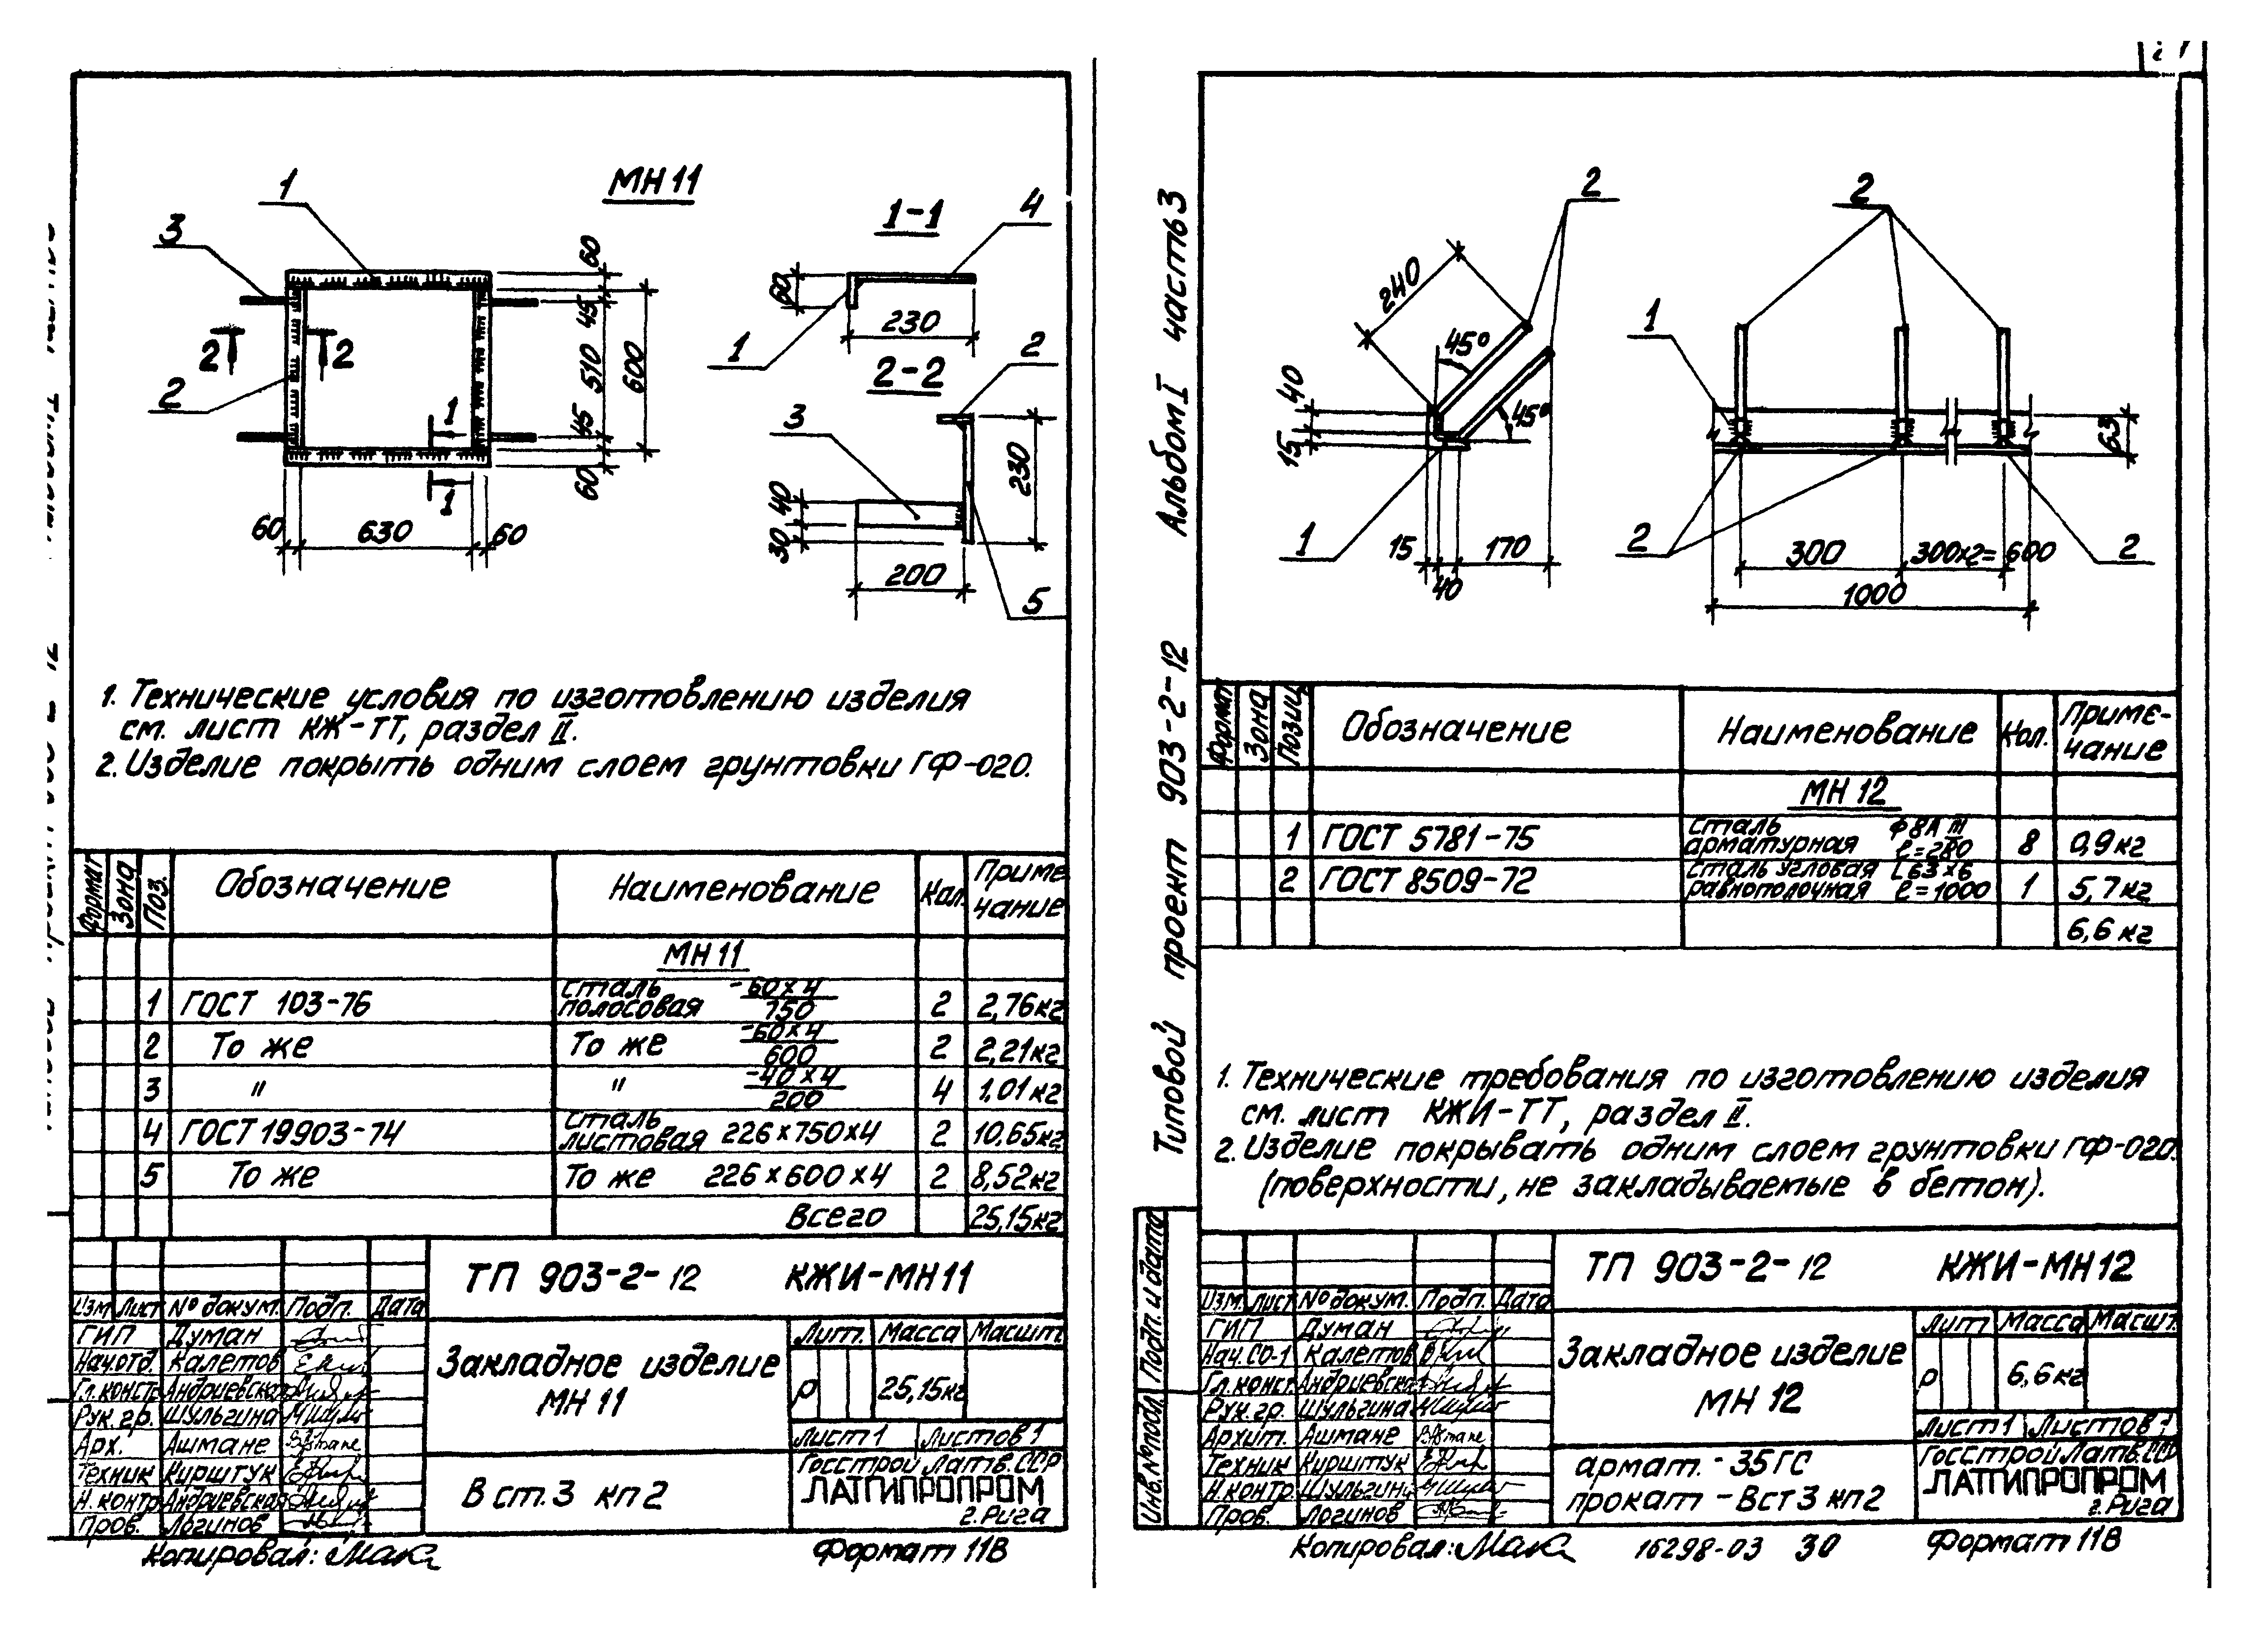 МН 11
1
3
2
2
2
1
1
60
45
510
45
60
600
60
630
60
1-1
4
60
230
1
2-2
2
3
230
40
30
200
5
1. Технические условия по изготовлению изделия
см. лист КЖ-ТТ, раздел II.
2. Изделие покрыть одним слоем грунтовки ГФ-020.
Формат Зона Поз. Обозначение Наименование Кол. Приме
чание
МН 11
1 ГОСТ 103-76 сталь полосовая -60×4 / 750 2 2,76кг
2 То же То же -60×4 / 600 2 2,21кг
3 " " -40×4 / 200 4 1,01кг
4 ГОСТ 19903-74 сталь листовая 226×750×4 2 10,65кг
5 То же То же 226×600×4 2 8,52кг
Всего 25,15кг
ТП 903-2-12 КЖИ-МН11
Изм Лист № докум. Подп. Дата
ГИП Думан
Нач.отд. Калетов
Гл.констр Андриевская
Рук. гр. Шульгина
Арх. Ашмане
Техник Кирштук
Н. контр Андриевская
Пров. Логинов
Закладное изделие
МН 11
Лит. Масса Масшт.
Р 25,15кг
Лист 1 Листов 1
В ст. 3 кп 2
Госстрой Латв. ССР
ЛАТГИПРОПРОМ
г. Рига
Копировал:
Формат 11В
Альбом I часть 3
Типовой проект 903-2-12
2
240
45°
45°
40
15
1
15
40
170
2
1
63
2
2
300
300×2=600
1000
Формат Зона Позиц Обозначение Наименование Кол. Приме-
чание
МН 12
1 ГОСТ 5781-75 сталь арматурная ф8А III ℓ=280 8 0,9 кг
2 ГОСТ 8509-72 сталь угловая равнополочная L63×6 ℓ=1000 1 5,7 кг
6,6 кг
1. Технические требования по изготовлению изделия
см. лист КЖИ-ТТ, раздел II.
2. Изделие покрывать одним слоем грунтовки ГФ-020.
(поверхности, не закладываемые в бетон).
Инв. № подл. Подп. и дата
ТП 903-2-12 КЖИ-МН12
Изм. Лист № докум. Подп. Дата
ГИП Думан
Нач. СО-1 Калетов
Гл.конст. Андриевская
Рук. гр. Шульгина
Архит. Ашмане
Техник Кирштук
Н.контр. Шульгина
Пров. Логинов
Закладное изделие
МН 12
Лит Масса Масшт.
Р 6,6 кг
Лист 1 Листов 1
армат. - 35ГС
прокат - Вст 3 кп 2
Госстрой Латв. ССР
ЛАТГИПРОПРОМ
г. Рига
Копировал:
16298-03 30
Формат 11В